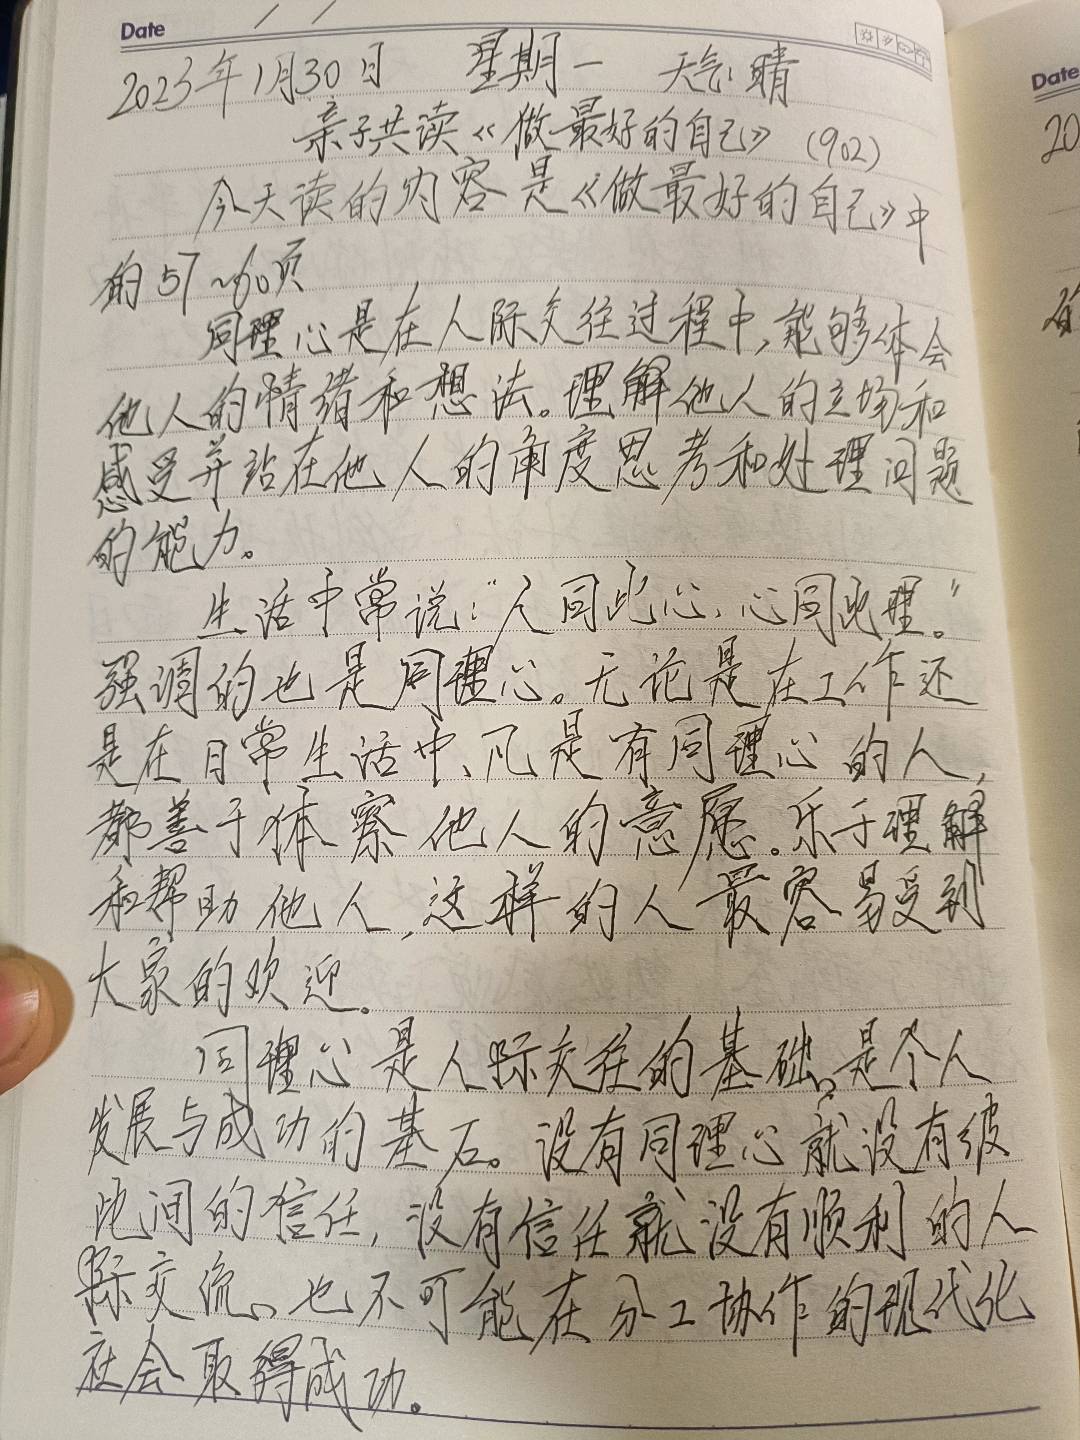 Date
2023年1月30日 星期一 天气:晴
亲子共读《做最好的自己》(902)
今天读的内容是《做最好的自己》中
的57~60页
同理心是在人际交往过程中,能够体会
他人的情绪和想法。理解他人的立场和
感受并站在他人的角度思考和处理问题
的能力。
生活中常说:“人同此心、心同此理。”
强调的也是同理心。无论是在工作还
是在日常生活中、凡是有同理心的人,
都善于体察他人的意愿。乐于理解
和帮助他人,这样的人最容易受到
大家的欢迎。
同理心是人际交往的基础。是个人
发展与成功的基石。没有同理心就没有彼
此间的信任,没有信任就没有顺利的人
际交流。也不可能在分工协作的现代化
社会取得成功。
Date
20